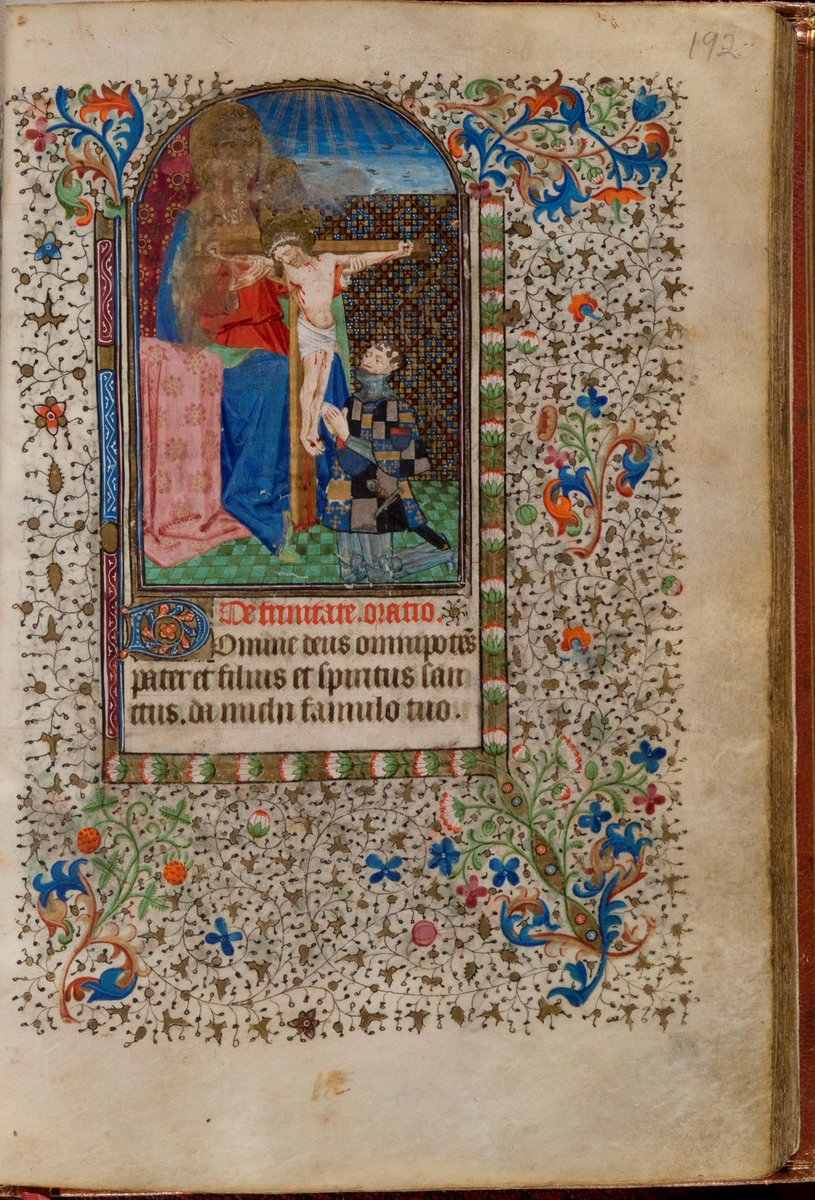 192
De trinitate. oratio.
Domine deus omnipotẽs
pater et filius et spiritus san
ctus. da michi famulo tuo.